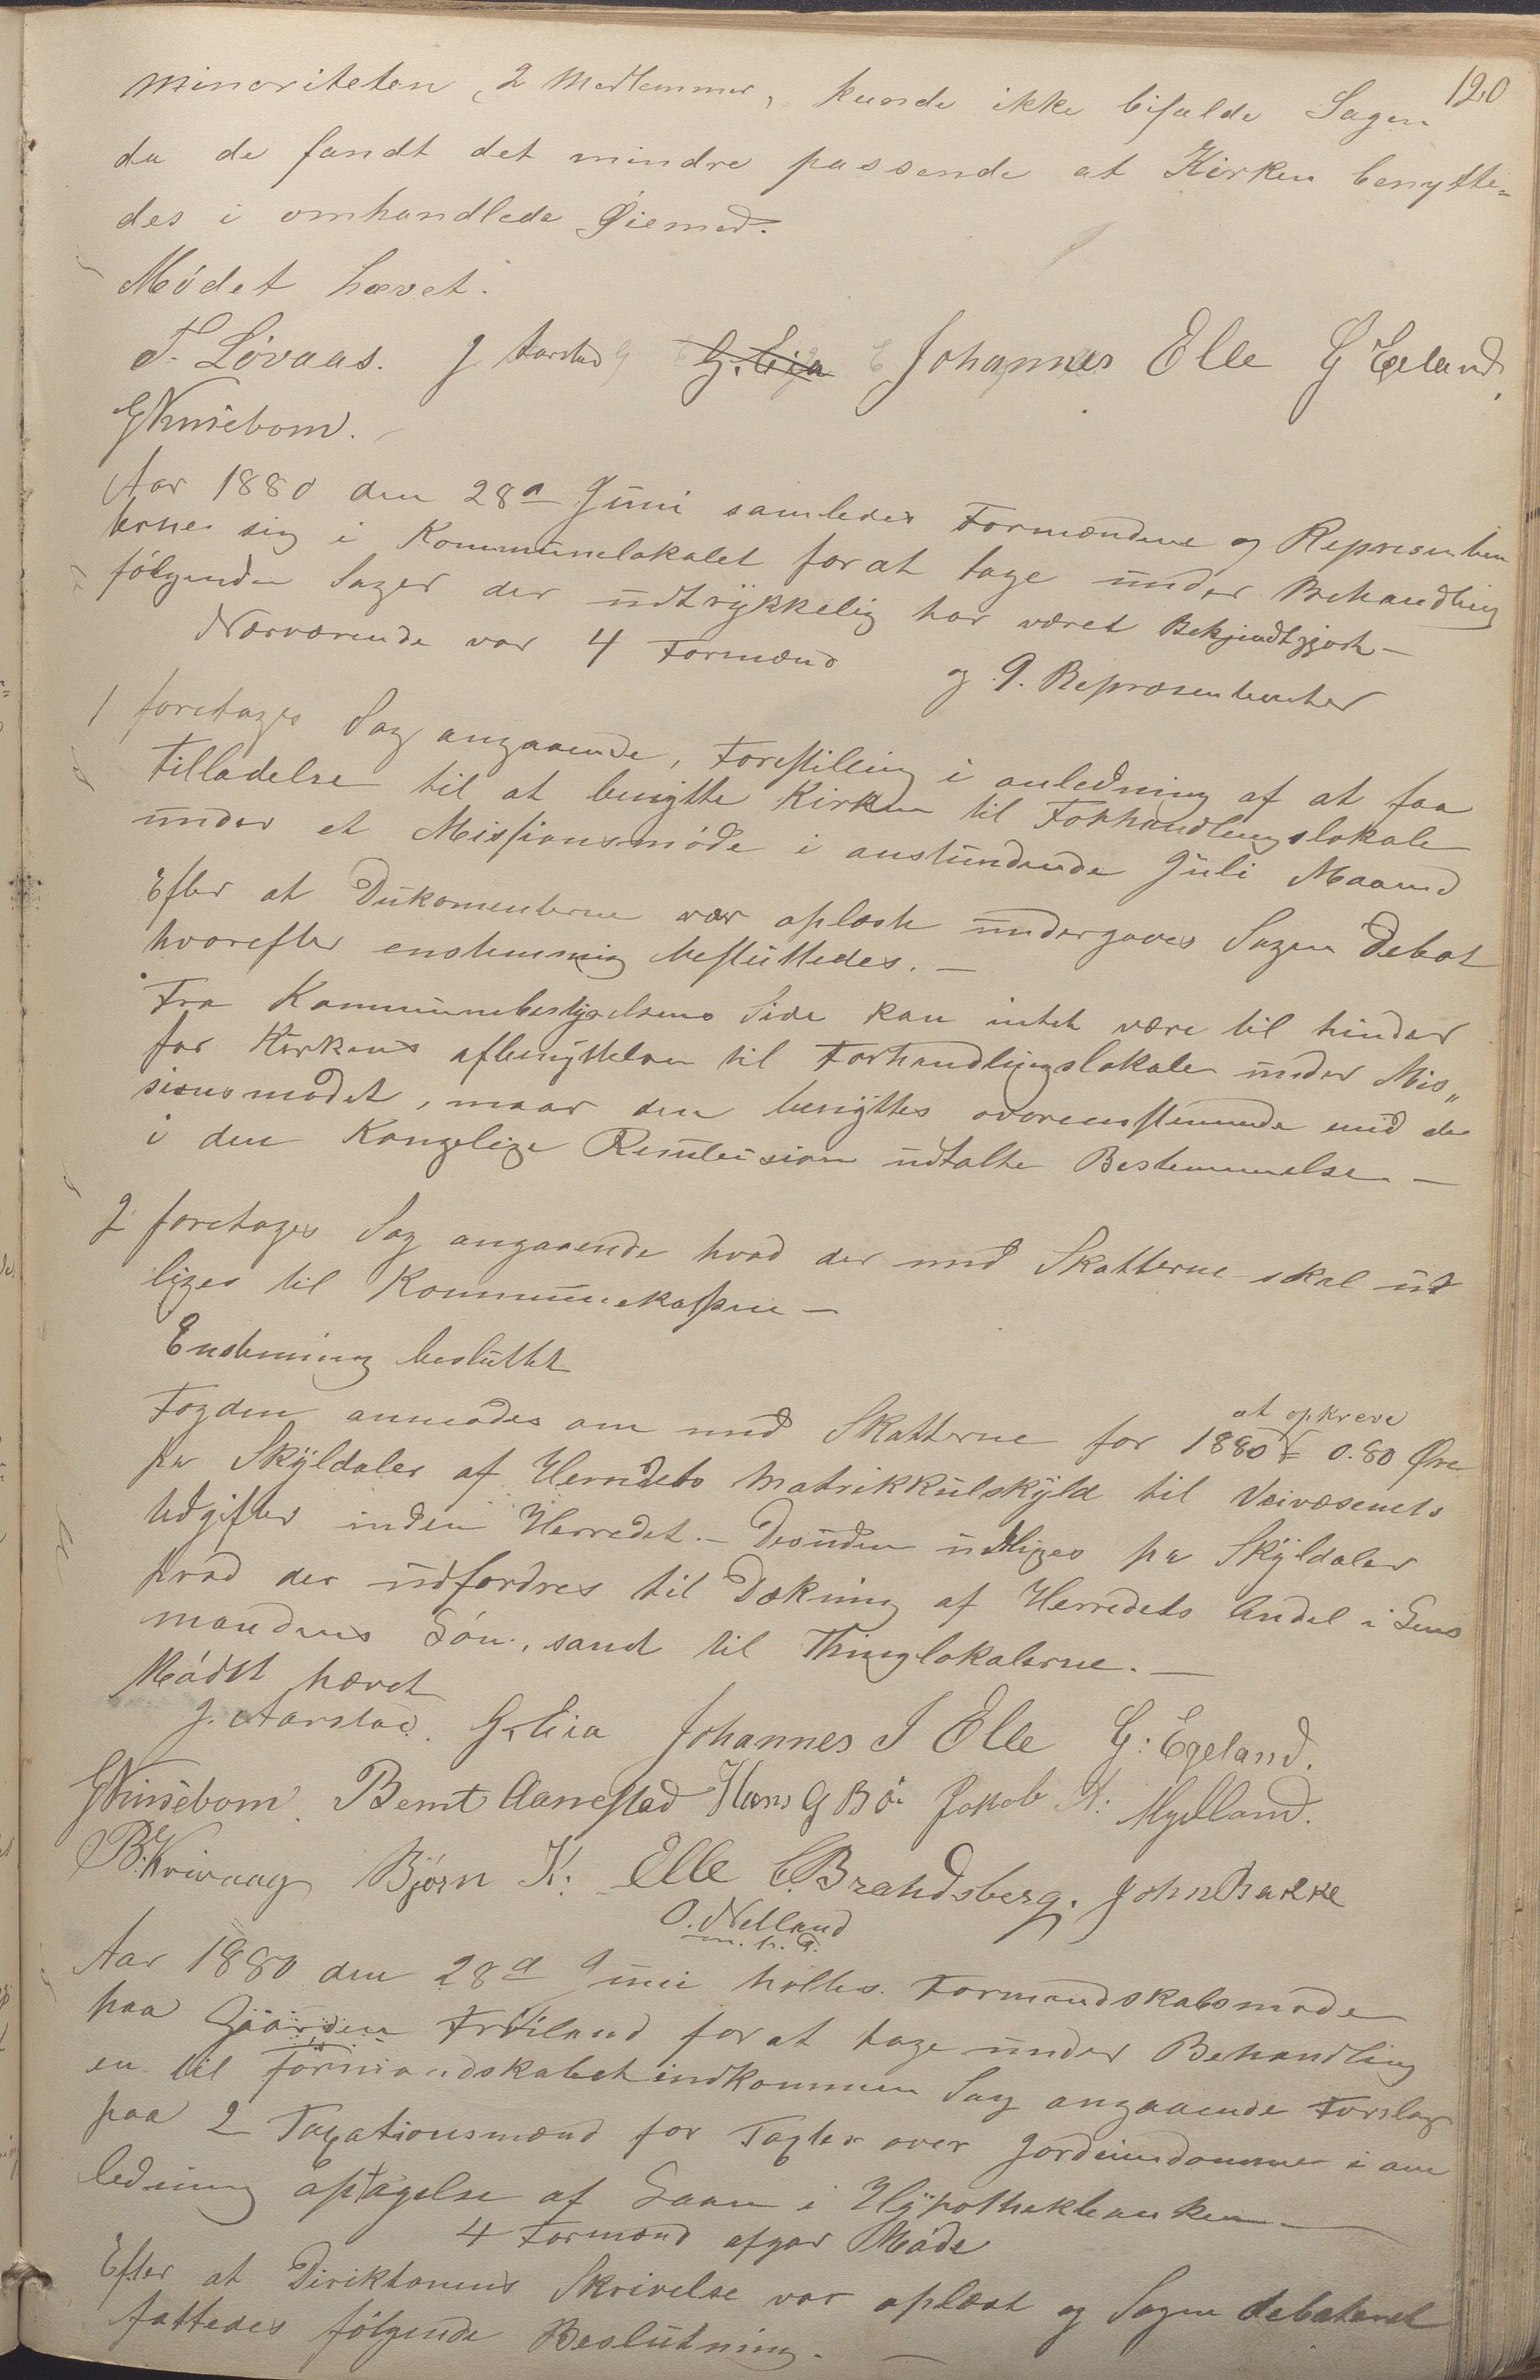 120
Minoriteten, 2 Medlemmer, kunde ikke bifalde Sagen
da de fandt det mindre passende at Kirken benytte=
des i omhandlede Øiemed.
Mødet hævet.
T. Løvaas. J Aarstad G. Eia Johannes Elle G Egeland,
Aar 1880 den 28de Juni samledes Formændene og Represen
terne sig i Kommunelokalet for at tage under Behandling
følgende Sager der udtrykkelig har været Bekjendtgjort —
Nærværende var 4 Formænd og 9. Repræsentanter
1 foretages Sag angaaende, Forestilling i anledning af at faa
Tilladelse til at benytte Kirken til Forhandlingslokale
under et Missionsmøde i anstundende Juli Maaned
Efter at Dukomenterne var oplæste undergaves Sagen Debat
hvorefter enstemmig besluttedes. —
Fra Kommunebestyrelsens Side kan intet være til hinder
for Kirkens afbenyttelse til Forhandlingslokale under Mis„
sionsmødet, naar den benyttes overensstemmende med de
i den Kongelige Resulusion udtalte Bestemmelse —
2 foretages Sag angaaende hvad der med Skatterne skal ud
liges til Kommunekassen —
Enstemmig besluttet
at opkreve
Fogden anmodes om med Skatterne for 1880 0.80 Øre
pr Skyldaler af Herredets Matrikkulskyld til Veivæsenets
Udgifter inden Herredet. — Desuden udliges pr Skyldaler
hvad der udfordres til Dækning af Herredets Andel i Lens
mandens Løn, samt til Thinglokalerne. —
Mødet hævet
J. Aarstad. G. Eia Johannes J Elle G: Egeland.
Bernt Aanestad Hans G Bø Jakob K: Myklland.
Bjørn K: Elle C. Brandsberg. John Bakke
O. Netland
m. p. P.
Aar 1880 den 28de Juni holtes Formandskabsmøde
paa Gaarden Frøiland for at tage under Behandling
en til Formandskabet indkommen Sag angaaende Forslag
paa 2 Taxationsmænd for Taxter over Jordeiendomme i an
ledning optagelse af Laan i Hypothekbanken —
4 Formænd afgav Møde
Efter at Direktionens Skrivelse var oplæst og Sagen debateret
fattedes følgende Beslutning. —